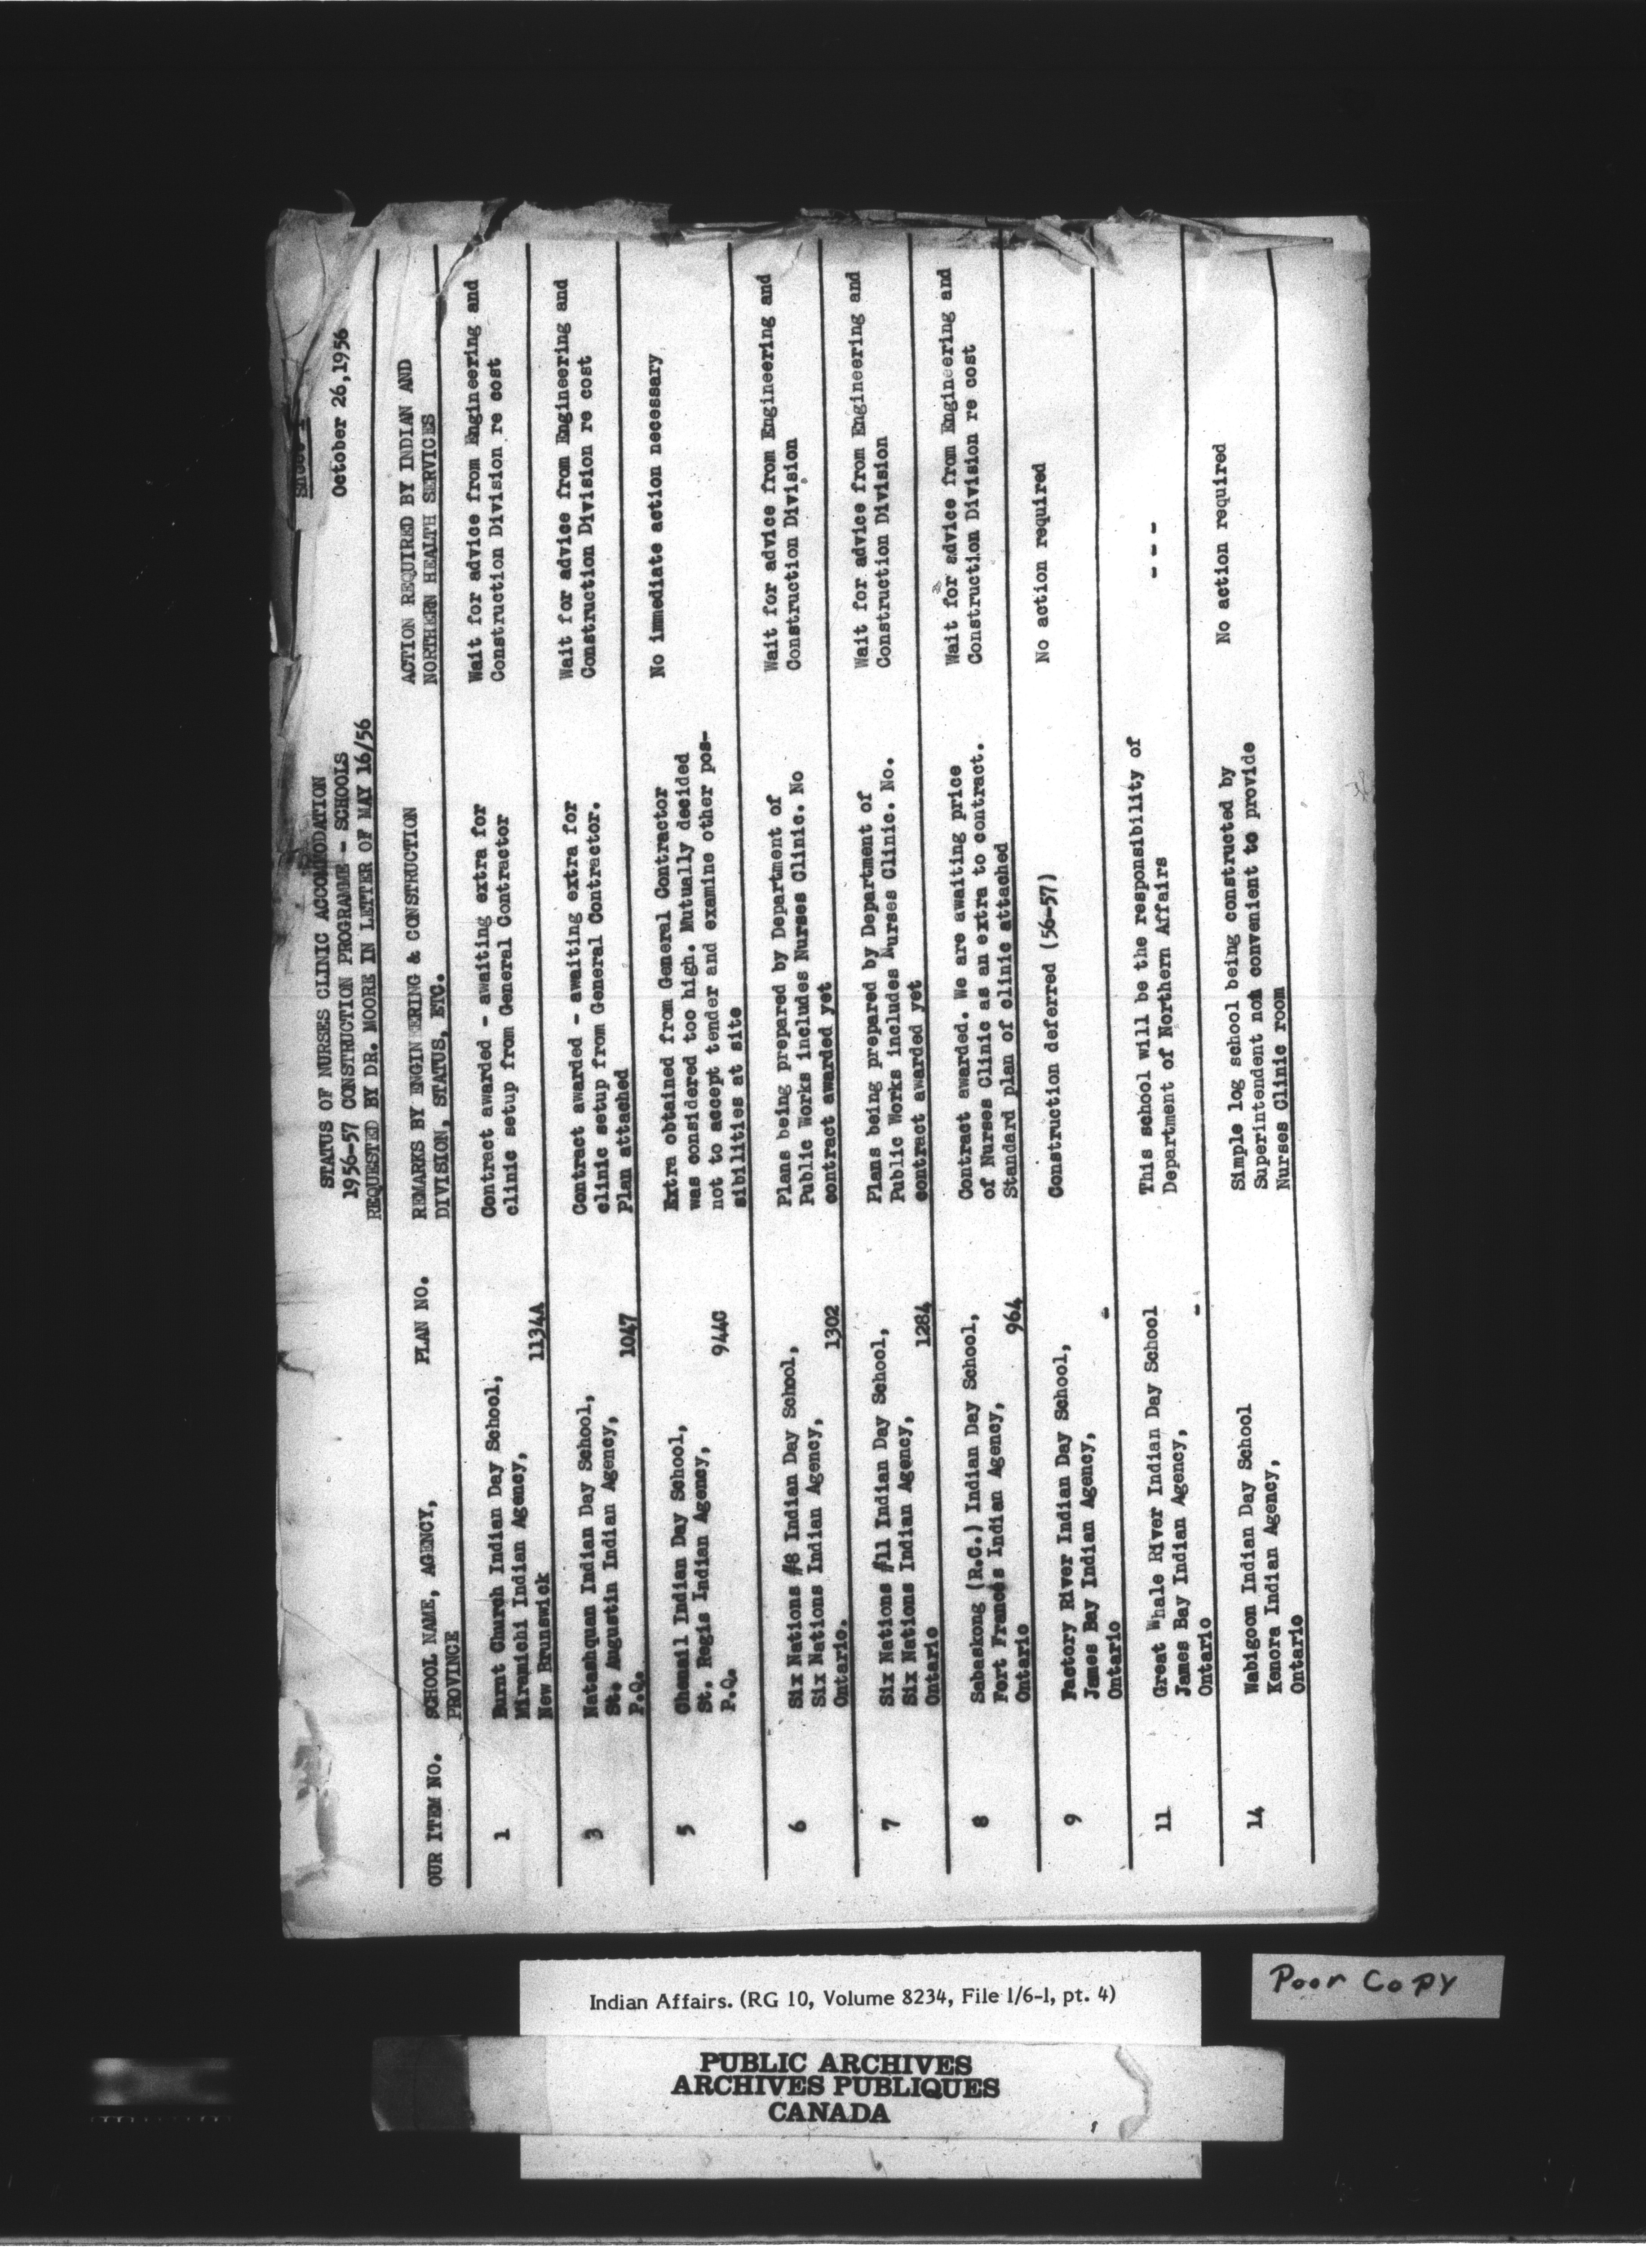 Sheet 1
October 26,1956
STATUS OF NURSES CLINIC ACCOMMODATION
1956-57 CONSTRUCTION PROGRAMME - SCHOOLS
REQUESTED BY DR. MOORE IN LETTER OF MAY 16/56
OUR ITEM NO.
SCHOOL NAME, AGENCY,
PROVINCE
PLAN NO.
REMARKS BY ENGINEERING & CONSTRUCTION
DIVISION, STATUS, ETC.
ACTION REQUIRED BY INDIAN AND
NORTHERN HEALTH SERVICES
1
Burnt Church Indian Day School,
Miramichi Indian Agency,
New Brunswick
1134A
Contract awarded - awaiting extra for
clinic setup from General Contractor
Wait for advice from Engineering and
Construction Division re cost
3
Natashquan Indian Day School,
St. Augustin Indian Agency,
P.Q.
1047
Contract awarded - awaiting extra for
clinic setup from General Contractor.
Plan attached
Wait for advice from Engineering and
Construction Division re cost
5
Chenail Indian Day School,
St. Regis Indian Agency,
P.Q.
944C
Extra obtained from General Contractor
was considered too high. Mutually decided
not to accept tender and examine other pos-
sibilities at site
No immediate action necessary
6
Six Nations #8 Indian Day School,
Six Nations Indian Agency,
Ontario.
1302
Plans being prepared by Department of
Public Works includes Nurses Clinic. No
contract awarded yet
Wait for advice from Engineering and
Construction Division
7
Six Nations #11 Indian Day School,
Six Nations Indian Agency,
Ontario
1284
Plans being prepared by Department of
Public Works includes Nurses Clinic. No.
contract awarded yet
Wait for advice from Engineering and
Construction Division
8
Sabaskong (R.C.) Indian Day School,
Fort Frances Indian Agency,
Ontario
964
Contract awarded. We are awaiting price
of Nurses Clinic as an extra to contract.
Standard plan of clinic attached
Wait for advice from Engineering and
Construction Division re cost
9
Factory River Indian Day School,
James Bay Indian Agency,
Ontario
-
Construction deferred (56-57)
No action required
11
Great Whale River Indian Day School
James Bay Indian Agency,
Ontario
-
This school will be the responsibility of
Department of Northern Affairs
- - -
14
Wabigoon Indian Day School
Kenora Indian Agency,
Ontario
Simple log school being constructed by
Superintendent not convenient to provide
Nurses Clinic room
No action required
Indian Affairs. (RG 10, Volume 8234, File 1/6-1, pt. 4)
Poor Copy
PUBLIC ARCHIVES
ARCHIVES PUBLIQUES
CANADA